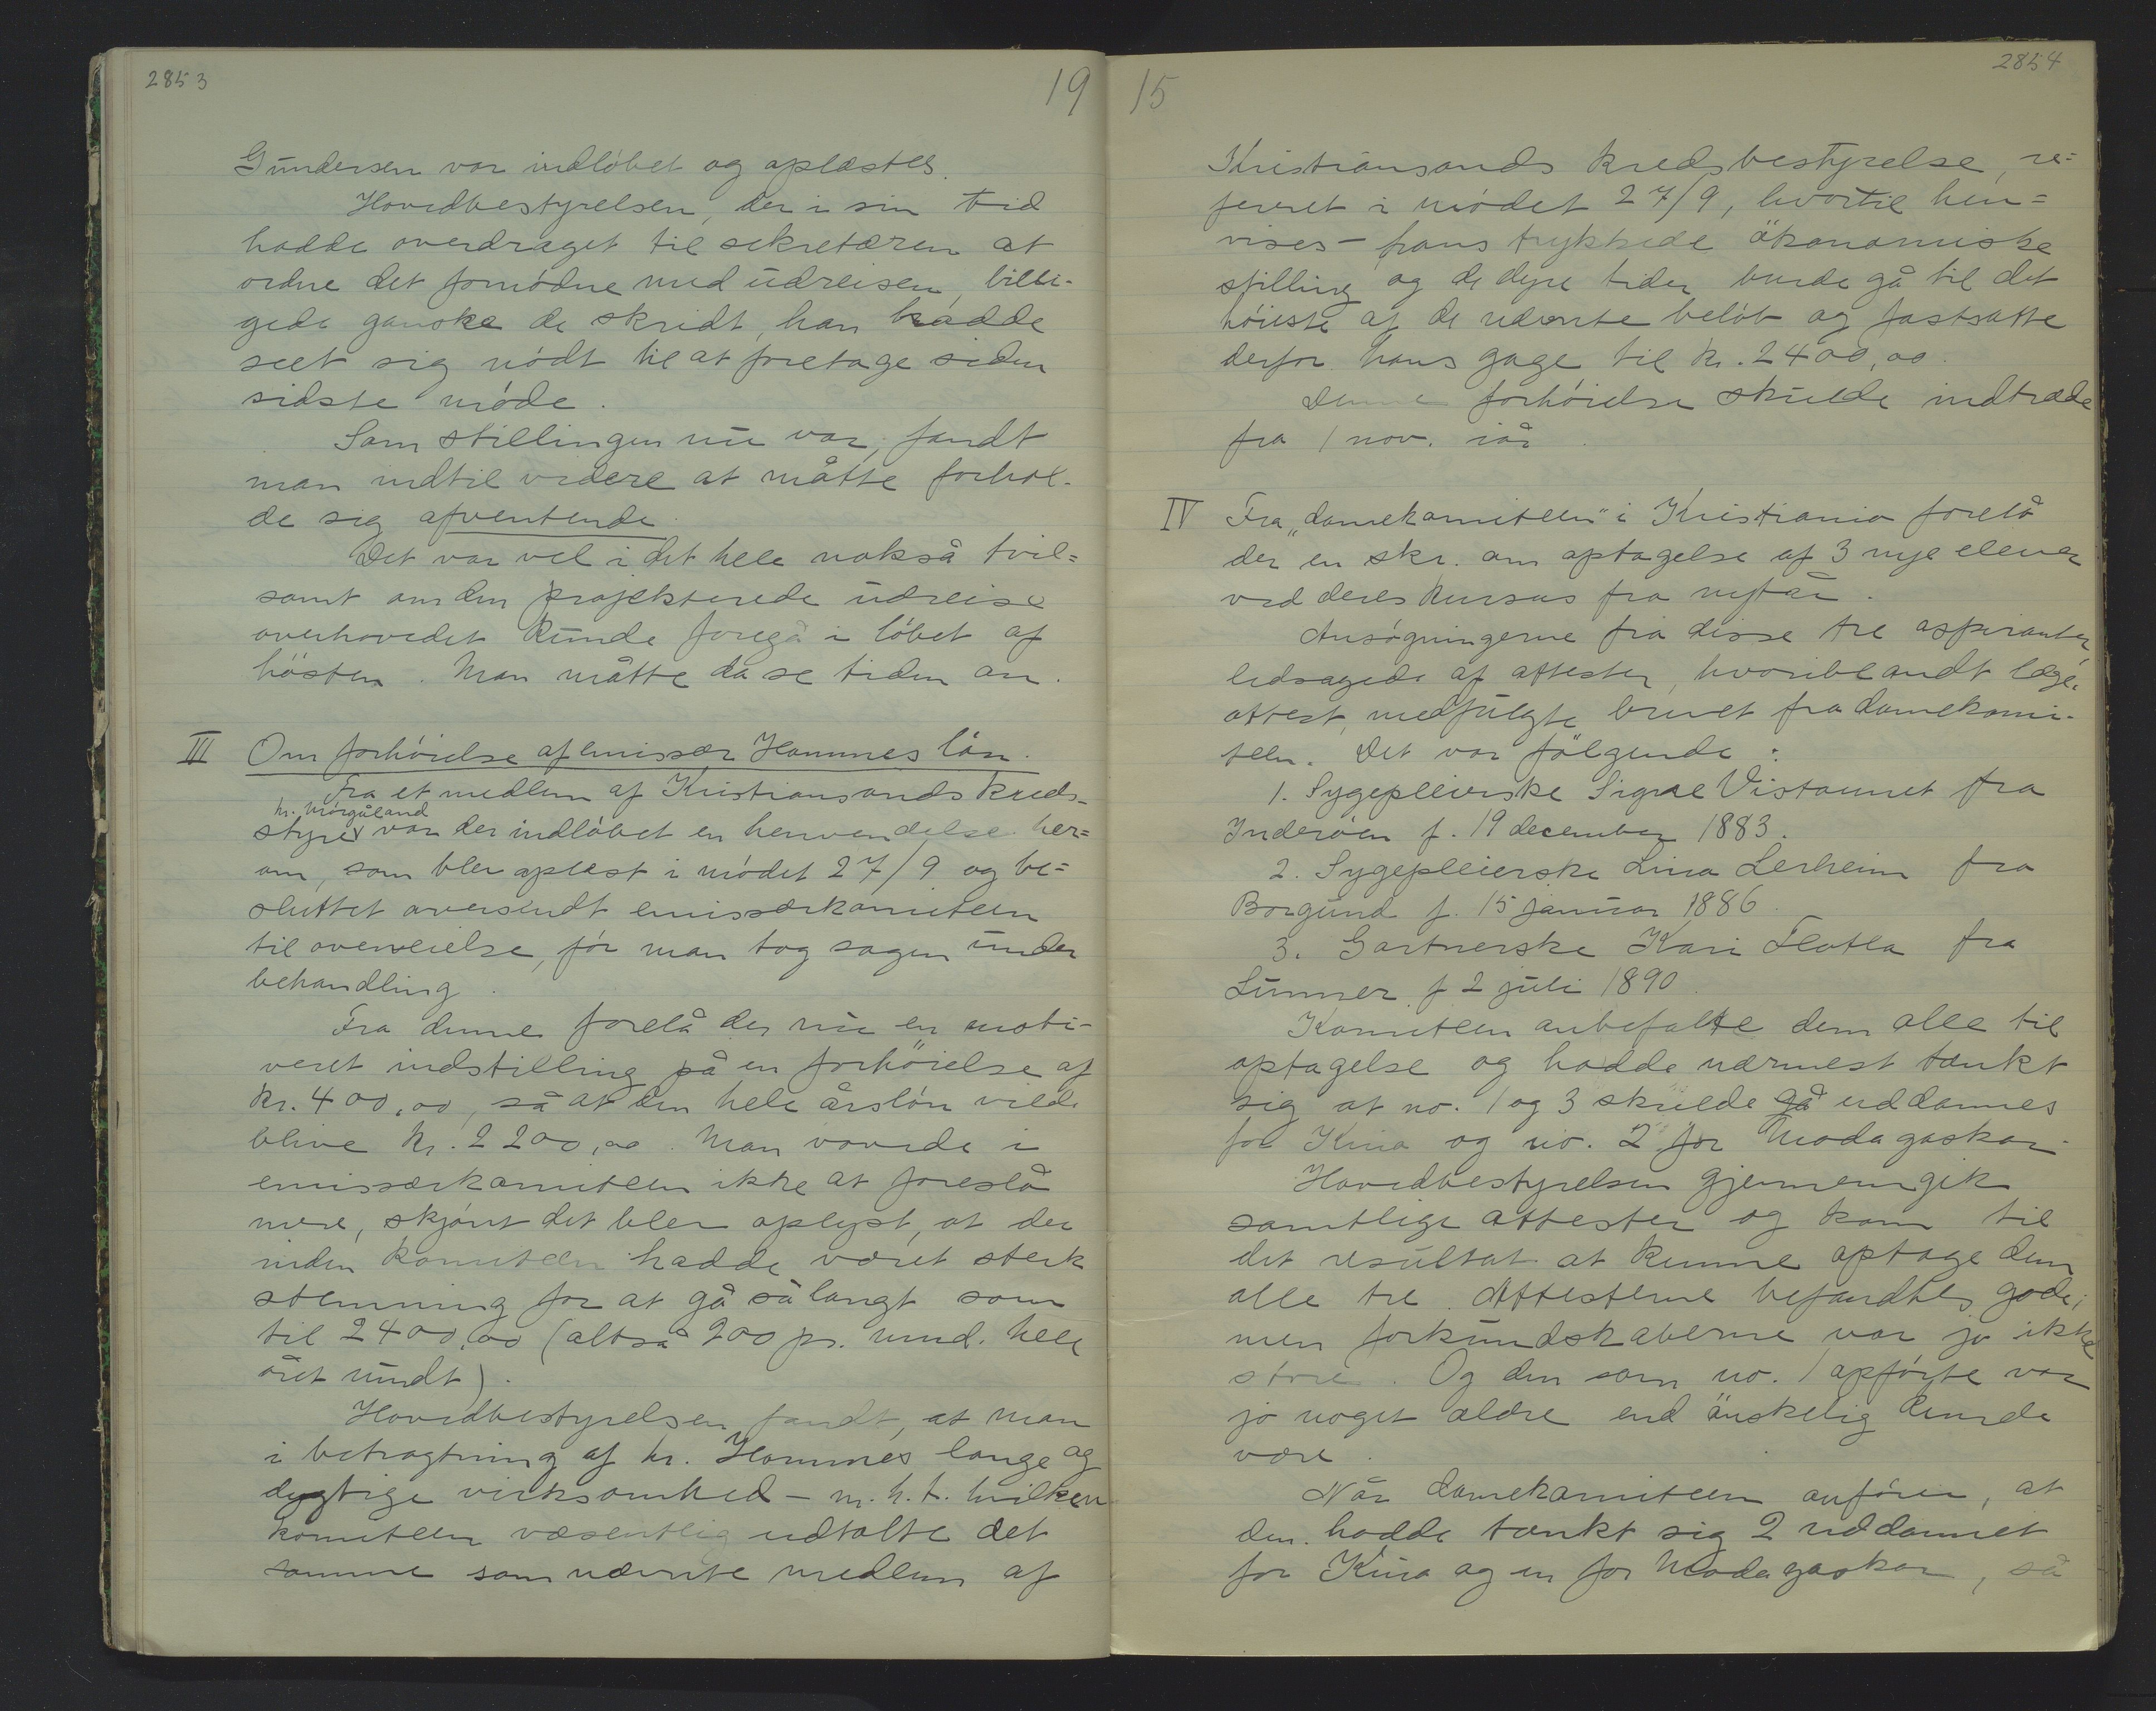 2853
19
Gundersen var indløbet og oplæstes.
Hovedbestyrelsen, der i sin tid
hadde overdraget til sekretæren at
ordne det fornødne med udreisen, billi-
gede ganske de skridt, han hadde
seet sig nødt til at foretage siden
sidste møde.
Som stillingen nu var, fandt
man indtil videre at måtte forhol-
de sig afventende.
Det var vel i det hele nokså tvil=
somt om den projekterede udreise
overhovedet kunde foregå i løbet af
hösten. Man måtte da se tiden an.
III Om forhöielse af emissær Hammes løn.
Fra et medlem af Kristiansands kreds-
hr. Mørgåland
styre var der indløbet en henvendelse her=
om, som blev oplæst i mødet 27/9 og be=
sluttet oversendt emissærkomiteen
til overveielse, før man tog sagen under
behandling.
Fra denne forelå der nu en moti-
veret indstilling på en forhöielse af
kr. 400,00, så at den hele årsløn vilde
blive kr. 2200,00. Man vovede i
emissærkomiteen ikke at foreslå
mere, skjønt det blev oplyst, at der
inden komiteen hadde været sterk
stemning for at gå så langt som
til 2400,00 (altså 200 pr. mnd. hele
året rundt).
Hovedbestyrelsen fandt, at man
i betragtning af hr. Hammes lange og
dygtige virksomhed - m.h.t. hvilken
komiteen væsentlig udtalte det
samme som nævnte medlem af
15
2854
Kristiansands kredsbestyrelse, re=
fereret i mødet 27/9, hvortil hen=
vises - hans trykkede ökonomiske
stilling og de dyre tider burde gå til det
höieste af de nævnte beløb og fastsatte
derfor hans gage til kr. 2400,00.
Denne forhöielse skulde indtræde
fra 1 nov. iår.
IV Fra „damekomiteen" i Kristiania forelå
der en skr. om optagelse af 3 nye elever
ved deres kursus fra nytår.
Ansøgningerne fra disse tre aspiranter
ledsagede af attester, hvoriblandt læge-
attest, medfulgte brevet fra damekomi-
teen. Det var følgende:
1. Sygepleierske Signe Vistaunet fra
Inderøen f. 19 december 1883.
2. Sygepleierske Lina Lerheim fra
Borgund f. 15 januar 1886.
3. Gartnerske Kari Flatla fra
Lunner f 2 juli 1890.
Komiteen anbefalte dem alle til
optagelse og hadde nærmest tænkt
sig at no. 1 og 3 skulde gå uddannes
for Kina og no. 2 for Madagaskar.
Hovedbestyrelsen gjennemgik
samtlige attester og kom til
det resultat at kunne optage dem
alle tre. Attesterne befandtes gode;
men forkundskaberne var jo ikke
store. Og den som no. 1 opførte var
jo noget ældre end önskelig kunde
være.
Når damekomiteen anfører, at
den hadde tænkt sig 2 uddannet
for Kina og en for Madagaskar, så